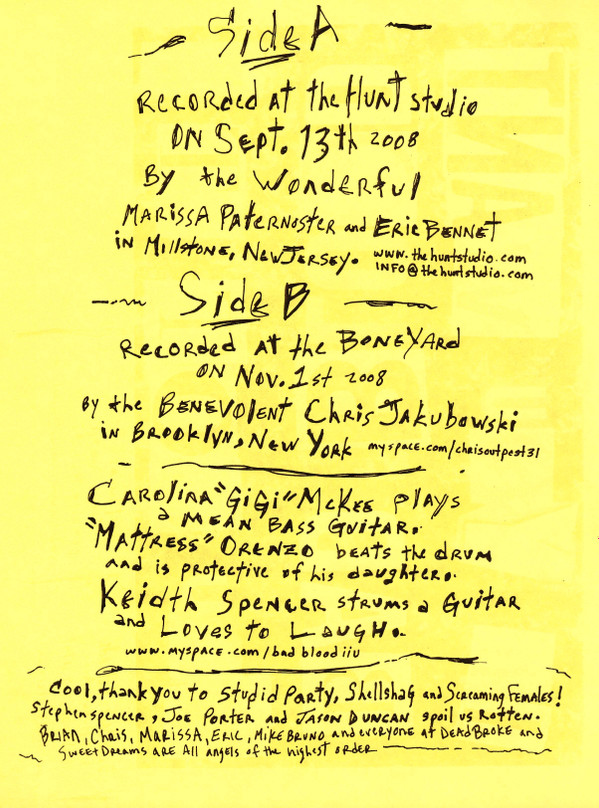 Side A
Recorded at the Hunt studio
ON Sept. 13th 2008
By the Wonderful
Marissa Paternoster and Eric Bennet
in Millstone, New Jersey. www.thehuntstudio.com
info@thehuntstudio.com
Side B
Recorded at the BoneYard
ON Nov. 1st 2008
By the Benevolent Chris Jakubowski
in Brooklyn, New York myspace.com/chrisoutpost31
Carolina "GiGi" McKee plays
a mean bass guitar.
"Mattress" Orenzo beats the drum
and is protective of his daughter.
Keidth Spencer strums a guitar
and Loves to Laugh.
www.myspace.com/badbloodiiu
Cool, thank you to Stupid Party, Shellshag and Screaming Females!
Stephen spencer, Joe Porter and Jason Duncan spoil us rotten.
Brian, Chris, Marissa, Eric, Mike Bruno and everyone at DeadBroke and
Sweet Dreams are All angels of the highest order